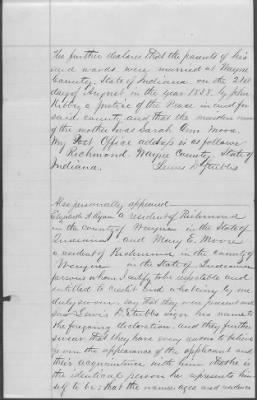 He further declares that the parents of his
said wards were married at Wayne
County, State of Indiana on the 21st
day of August in the year 1858 by John
Kirby a Justice of the Peace in and for
said county and that the maiden name
of the mother was Sarah Ann Moore.
My Post Office address is as follows
Richmond Wayne County, State of
Indiana. Lewis D. Stubbs
Also personally appeared
Elizabeth A Ryan a resident of Richmond
in the county of Wayne in the State of
Indiana and Mary E. Moore
a resident of Richmond in the county of
Wayne in the State of Indiana
persons whom I certify to be respectable and
entitled to credit and who being by me
duly sworn, say that they were present and
saw Lewis D. Stubbs sign his name to
the foregoing declaration. And they further
swear that they have every reason to believe
from the appearance of the applicant and
their acquaintance with him that he is
the identical person he represents him
self to be: that the names, ages and residence